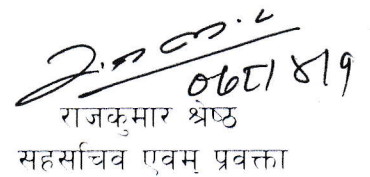 ०६८/४/१
राजकुमार श्रेष्ठ
सहसचिव एवम् प्रवक्ता